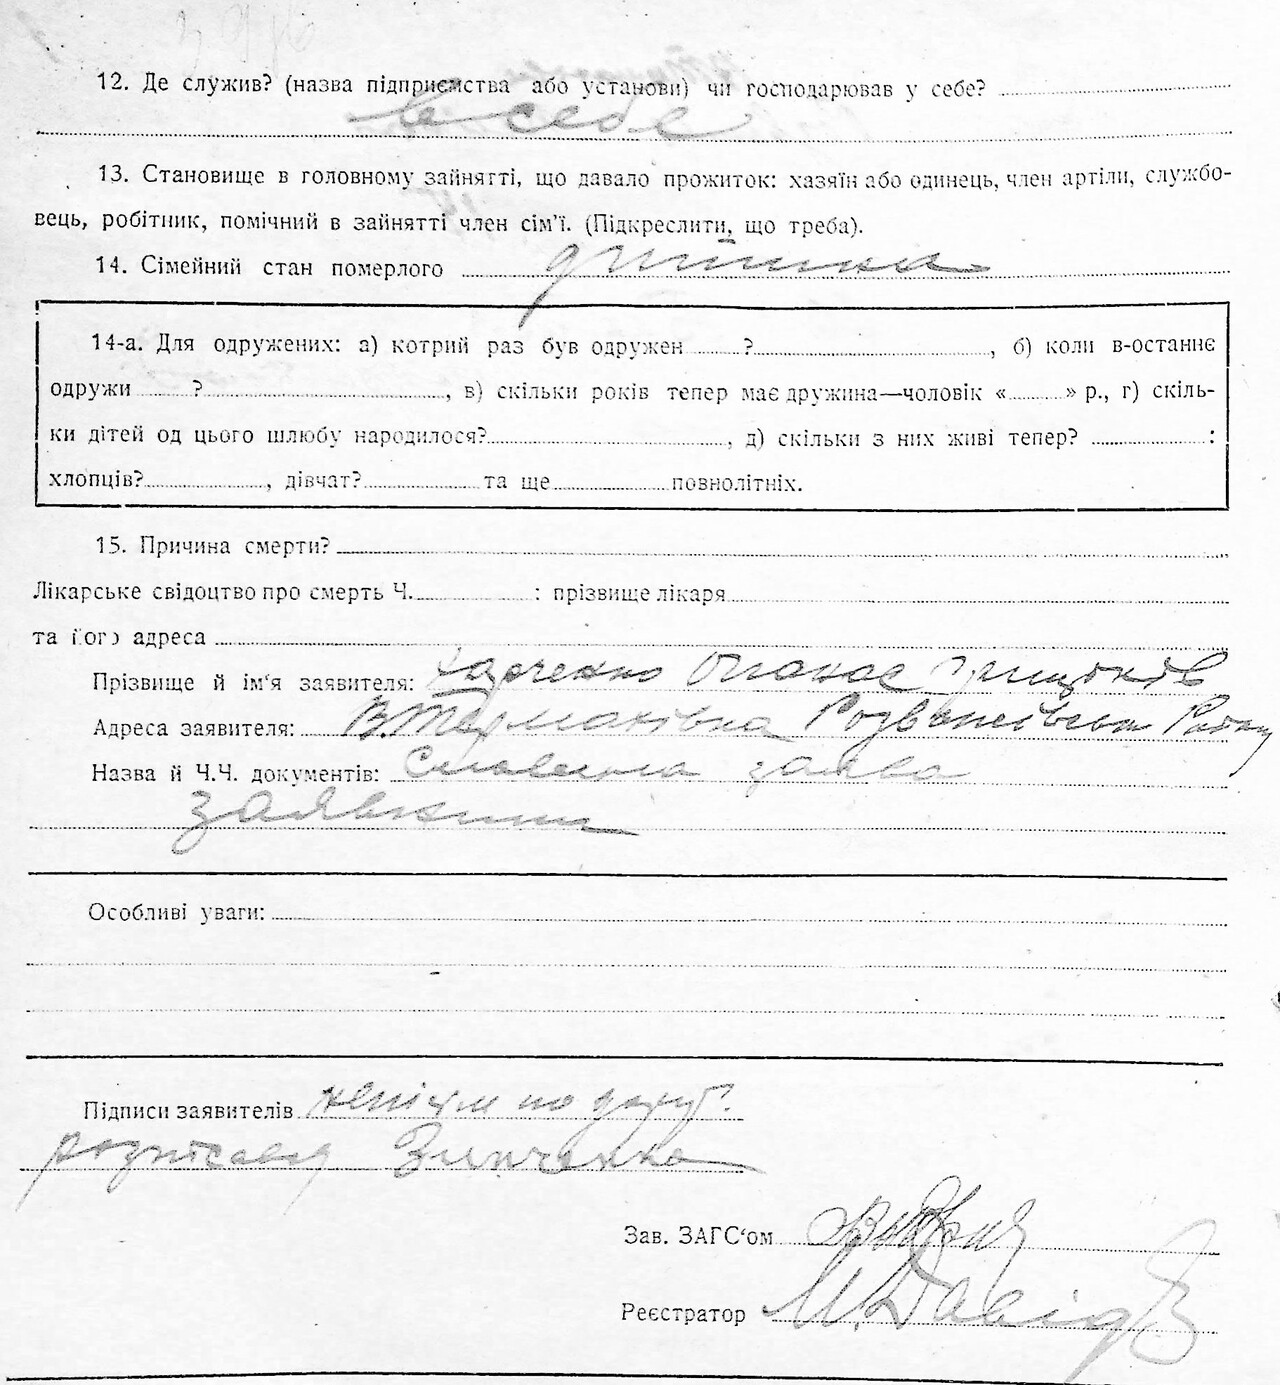 12. Де служив? (назва підприємства або установи) чи господарював у себе?
в себе
13. Становище в головному зайнятті, що давало прожиток: хазяїн або одинець, член артіли, службо-
вець, робітник, помічний в зайнятті член сім'ї. (Підкреслити, що треба).
14. Сімейний стан померлого
14-а. Для одружених: а) котрий раз був одружен ? , б) коли в-останнє
одружи ? , в) скільки років тепер має дружина—чоловік « » р., г) скіль-
ки дітей од цього шлюбу народилося? , д) скільки з них живі тепер? :
хлопців? , дівчат? та ще повнолітніх.
15. Причина смерти?
Лікарське свідоцтво про смерть Ч. : прізвище лікаря
та його адреса
Прізвище й ім'я заявителя: Харченко Опанас
Адреса заявителя: В. Термахівка Розважівськ Району
Назва й Ч.Ч. документів: Словесна заява
заявника
Особливі уваги:
Підписи заявителів непісм по доруч.
розписався Зінченко
Зав. ЗАГС'ом
Реєстратор М. Давід